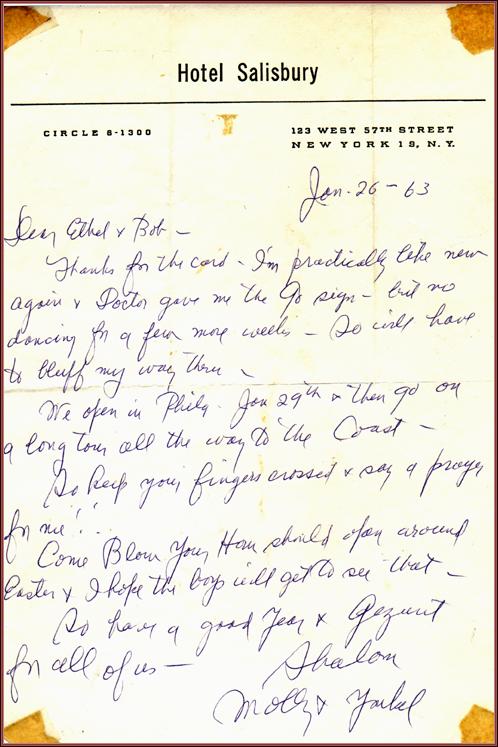 Hotel Salisbury
CIRCLE 6-1300
123 WEST 57TH STREET
NEW YORK 19, N.Y.
Jan. 26 - 63
Dear Ethel & Bob -
Thanks for the card - I'm practically like new
again & Doctor gave me the Go sign - but no
dancing for a few more weeks - So will have
to bluff my way thru -
We open in Phily. Jan 29th & then go on
a long tour all the way to the Coast -
So keep your fingers crossed & say a prayer
for me!!
Come Blow Your Horn should open around
Easter & I hope the boys will get to see that -
So have a good Year & Gezunt
for all of us -
Shalom
Molly & Yankel